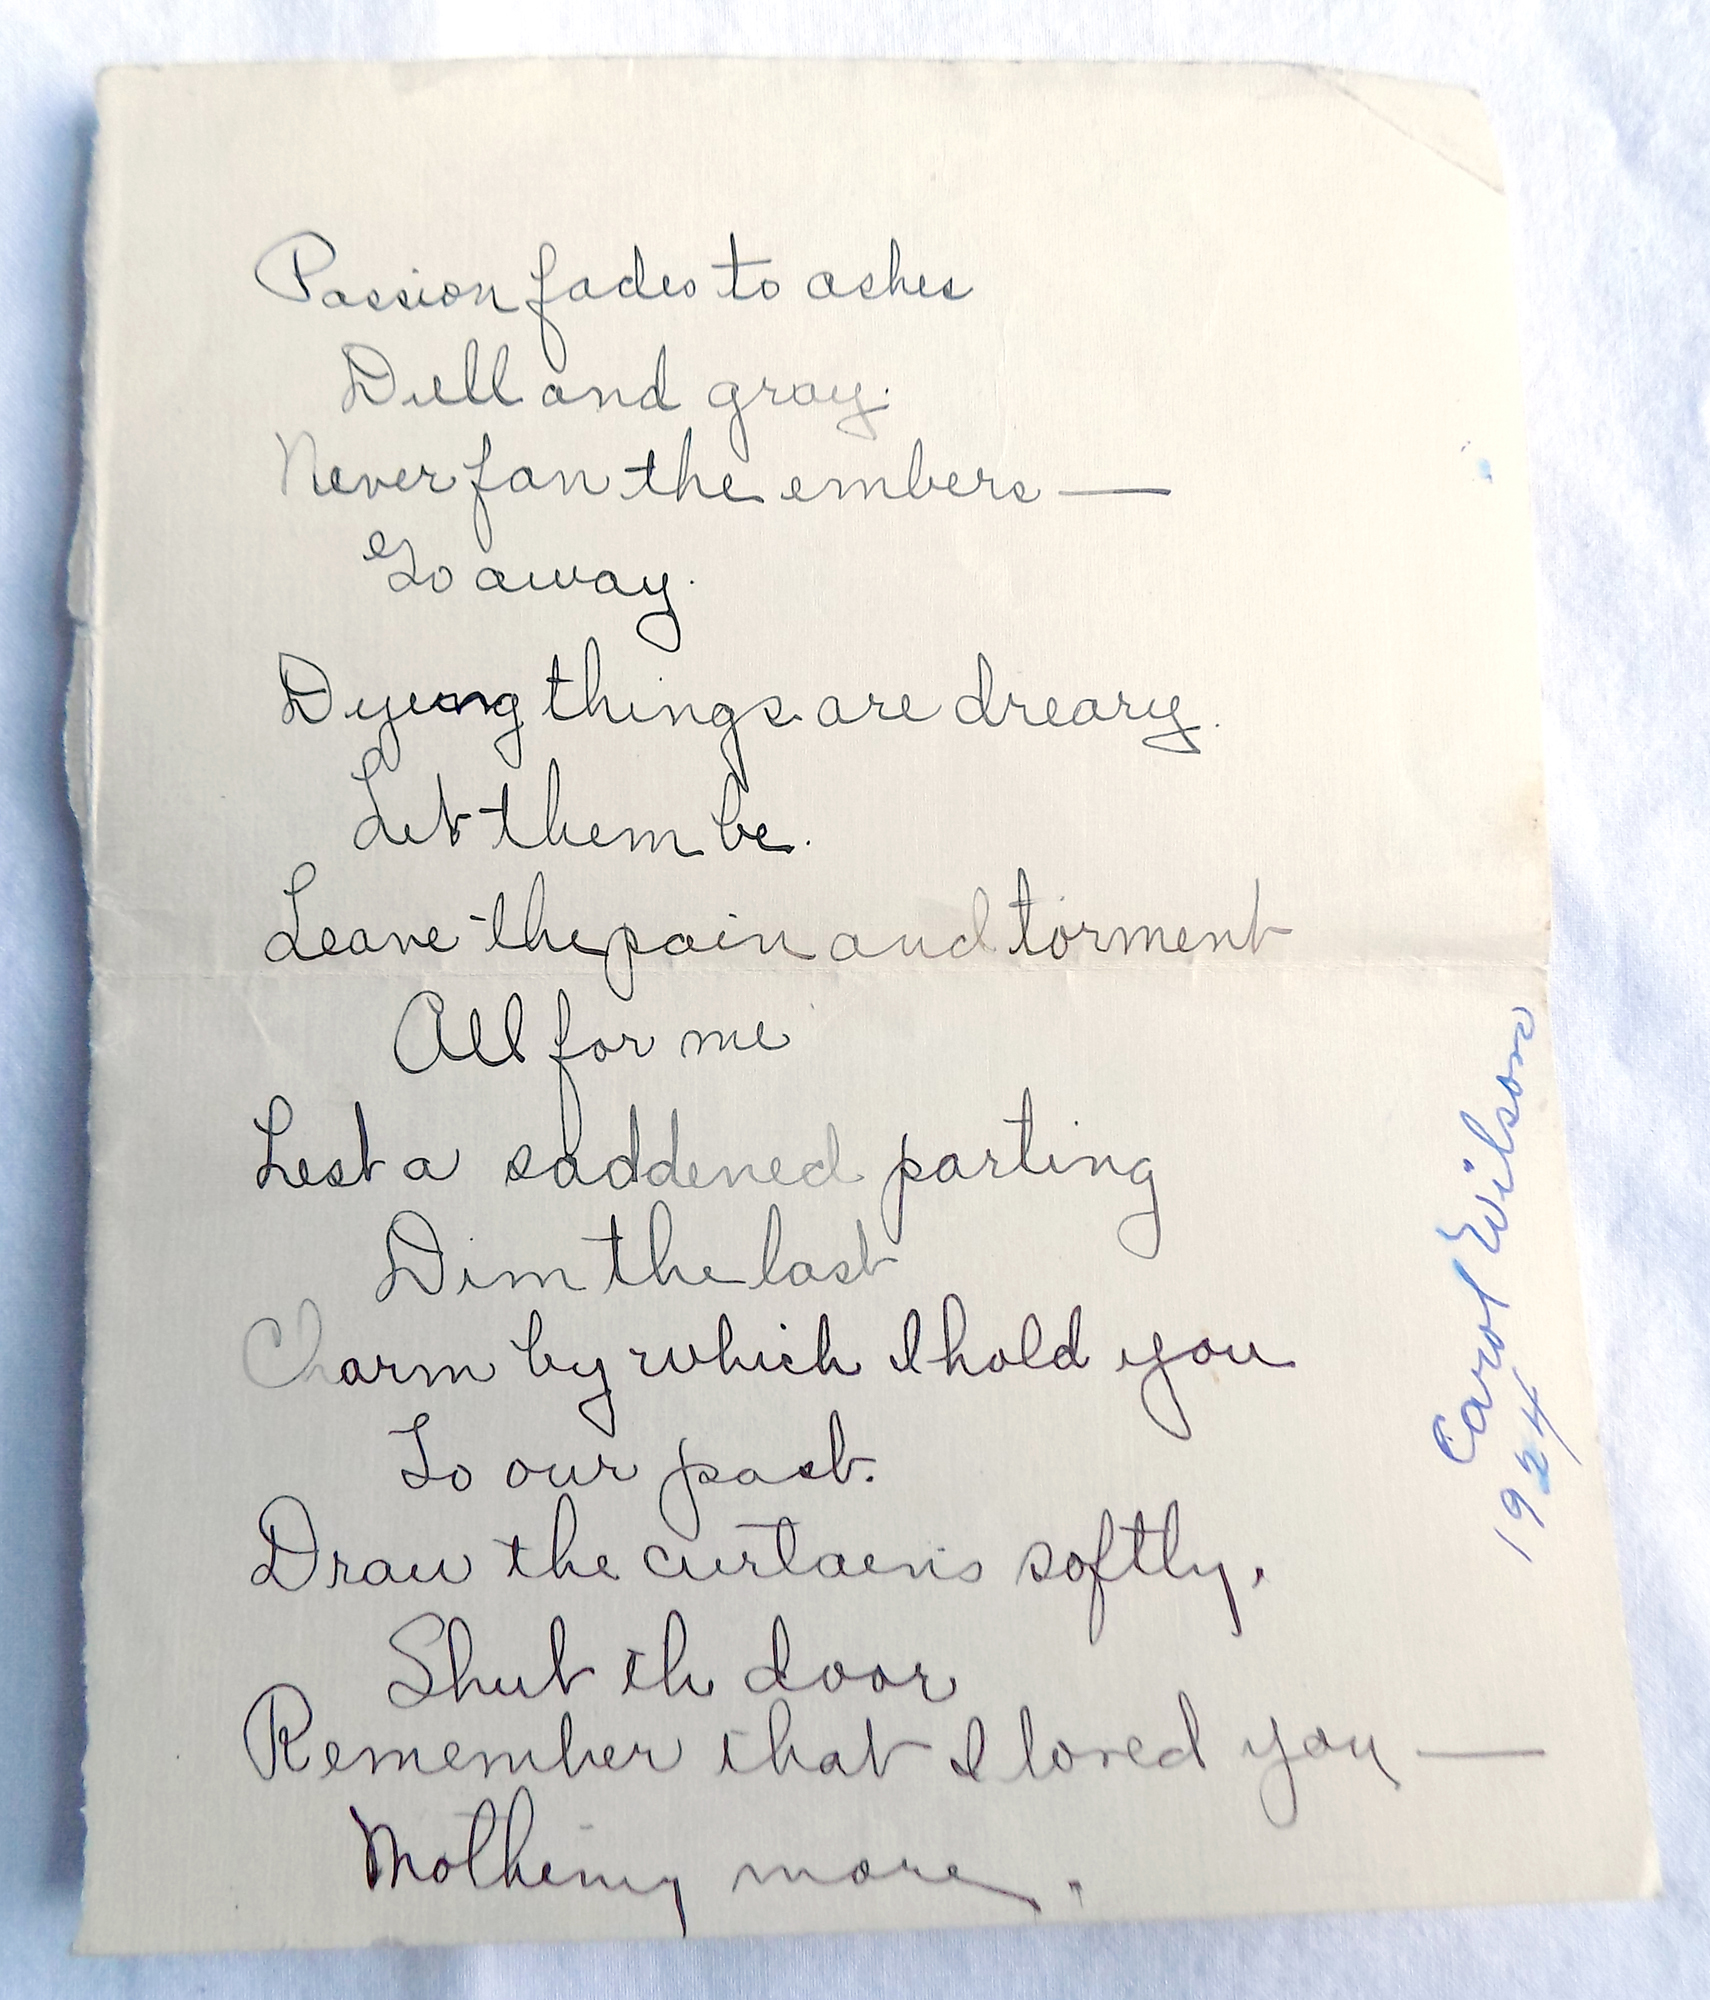 Passion fades to ashes
Dull and gray.
Never fan the embers —
Go away.
Dyeing things are dreary.
Let them be.
Leave the pain and torment
All for me
Lest a saddened parting
Dim the last
Charm by which I hold you
To our past.
Draw the curtains softly.
Shut th door
Remember that I loved you —
Nothing more.
Carol Wilson
1924